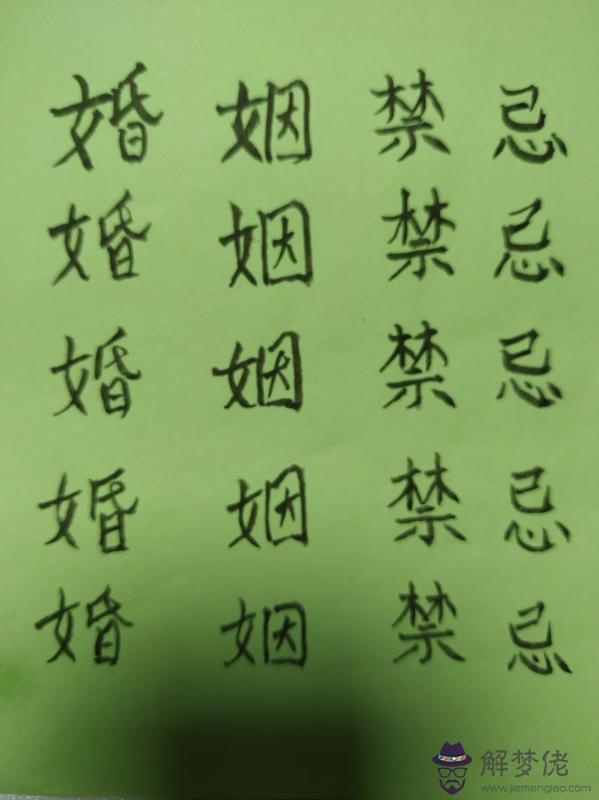 婚 姻 禁 忌
婚 姻 禁 忌
婚 姻 禁 忌
婚 姻 禁 忌
婚 姻 禁 忌
解梦佬
www.jiemenglao.com